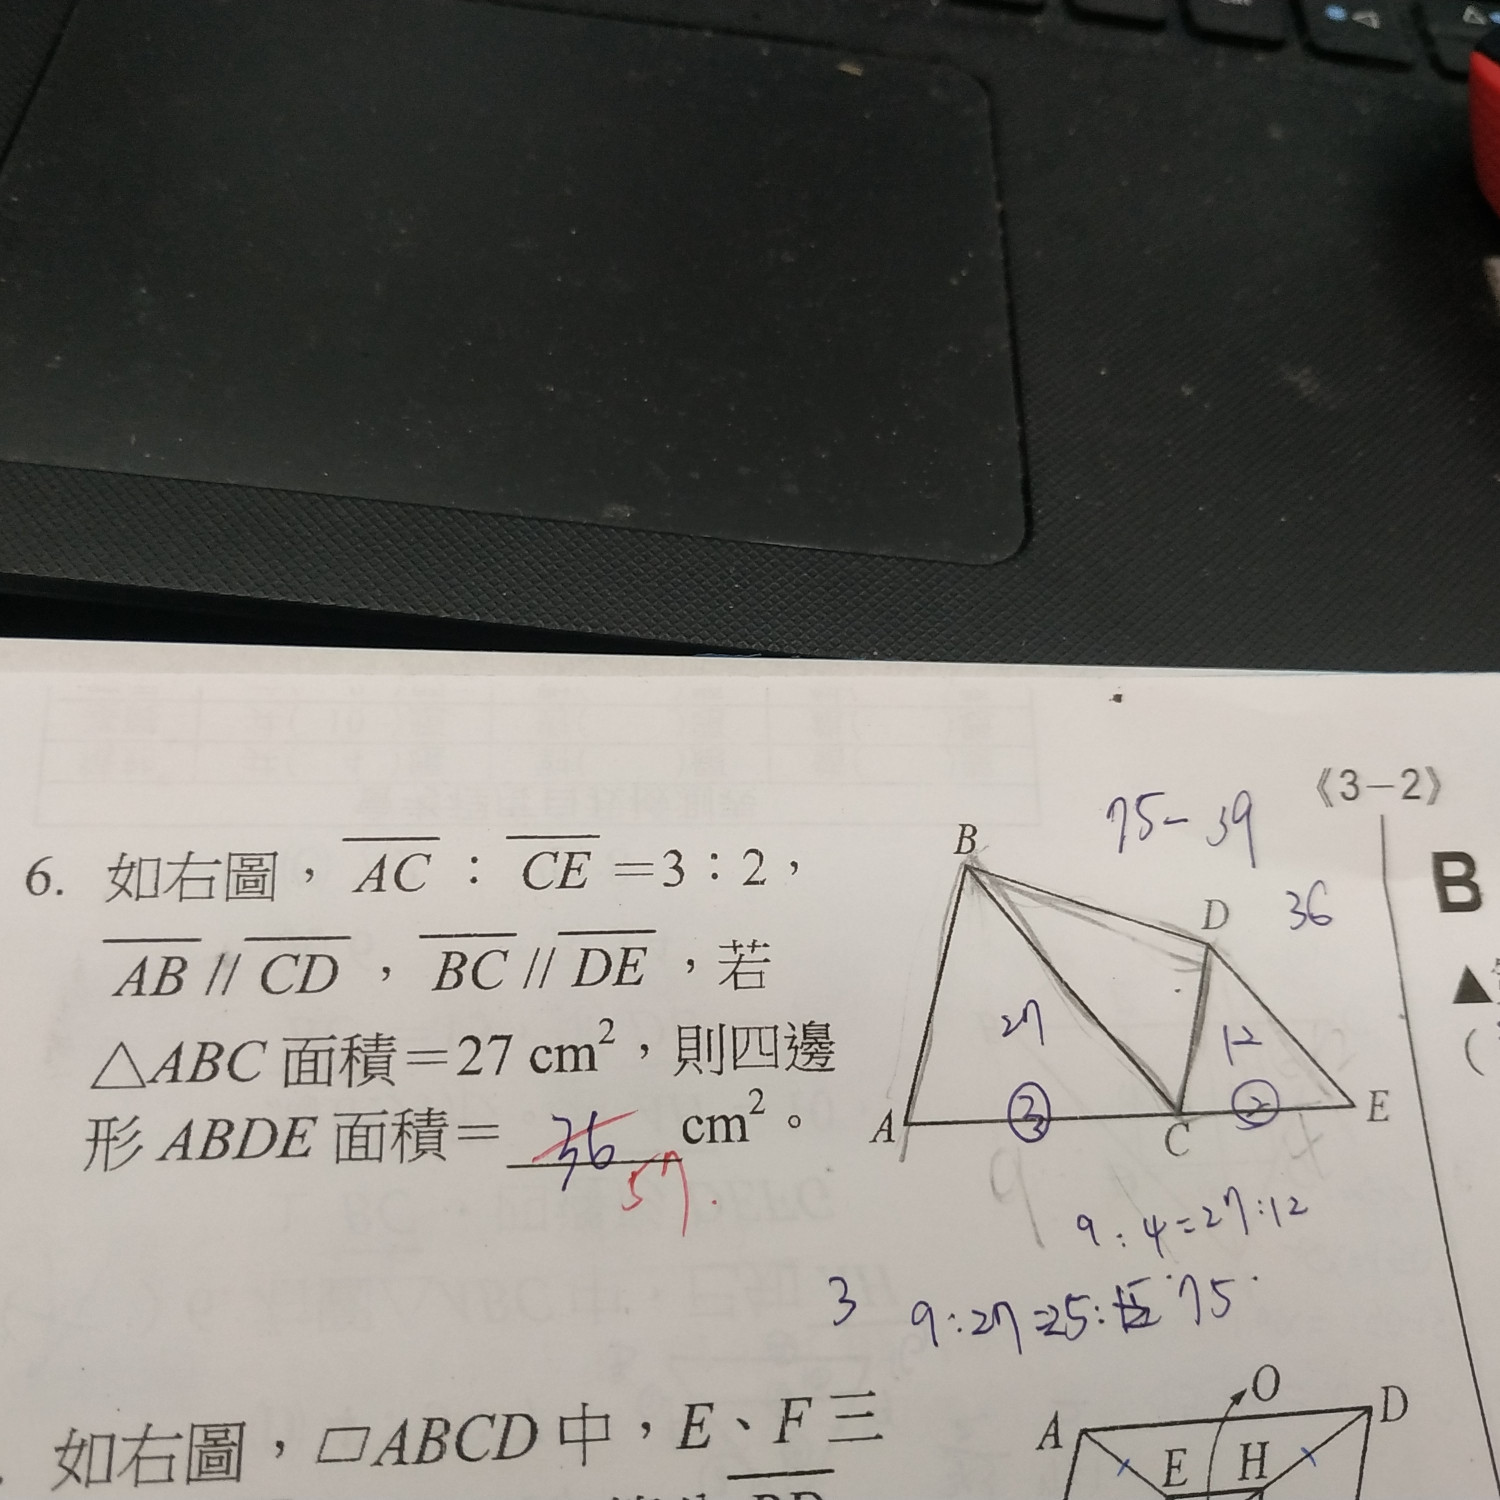 《3-2》
75-39
36
6. 如右圖, AC : CE =3:2,
AB // CD , BC // DE ,若
△ABC 面積=27 cm²,則四邊
形 ABDE 面積= 36 cm²。
57.
B
D
27
12
A
3
C
2
E
9:4=27:12
3 9:27=25: 75
B
▲
(
如右圖,▱ABCD 中,E、F 三
BD
O
A
D
E
H